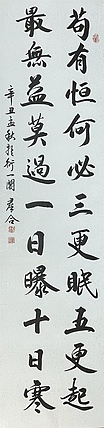 苟有恒何必三更眠五更起
最無益莫過一日曝十日寒
辛丑孟秋於行一閣